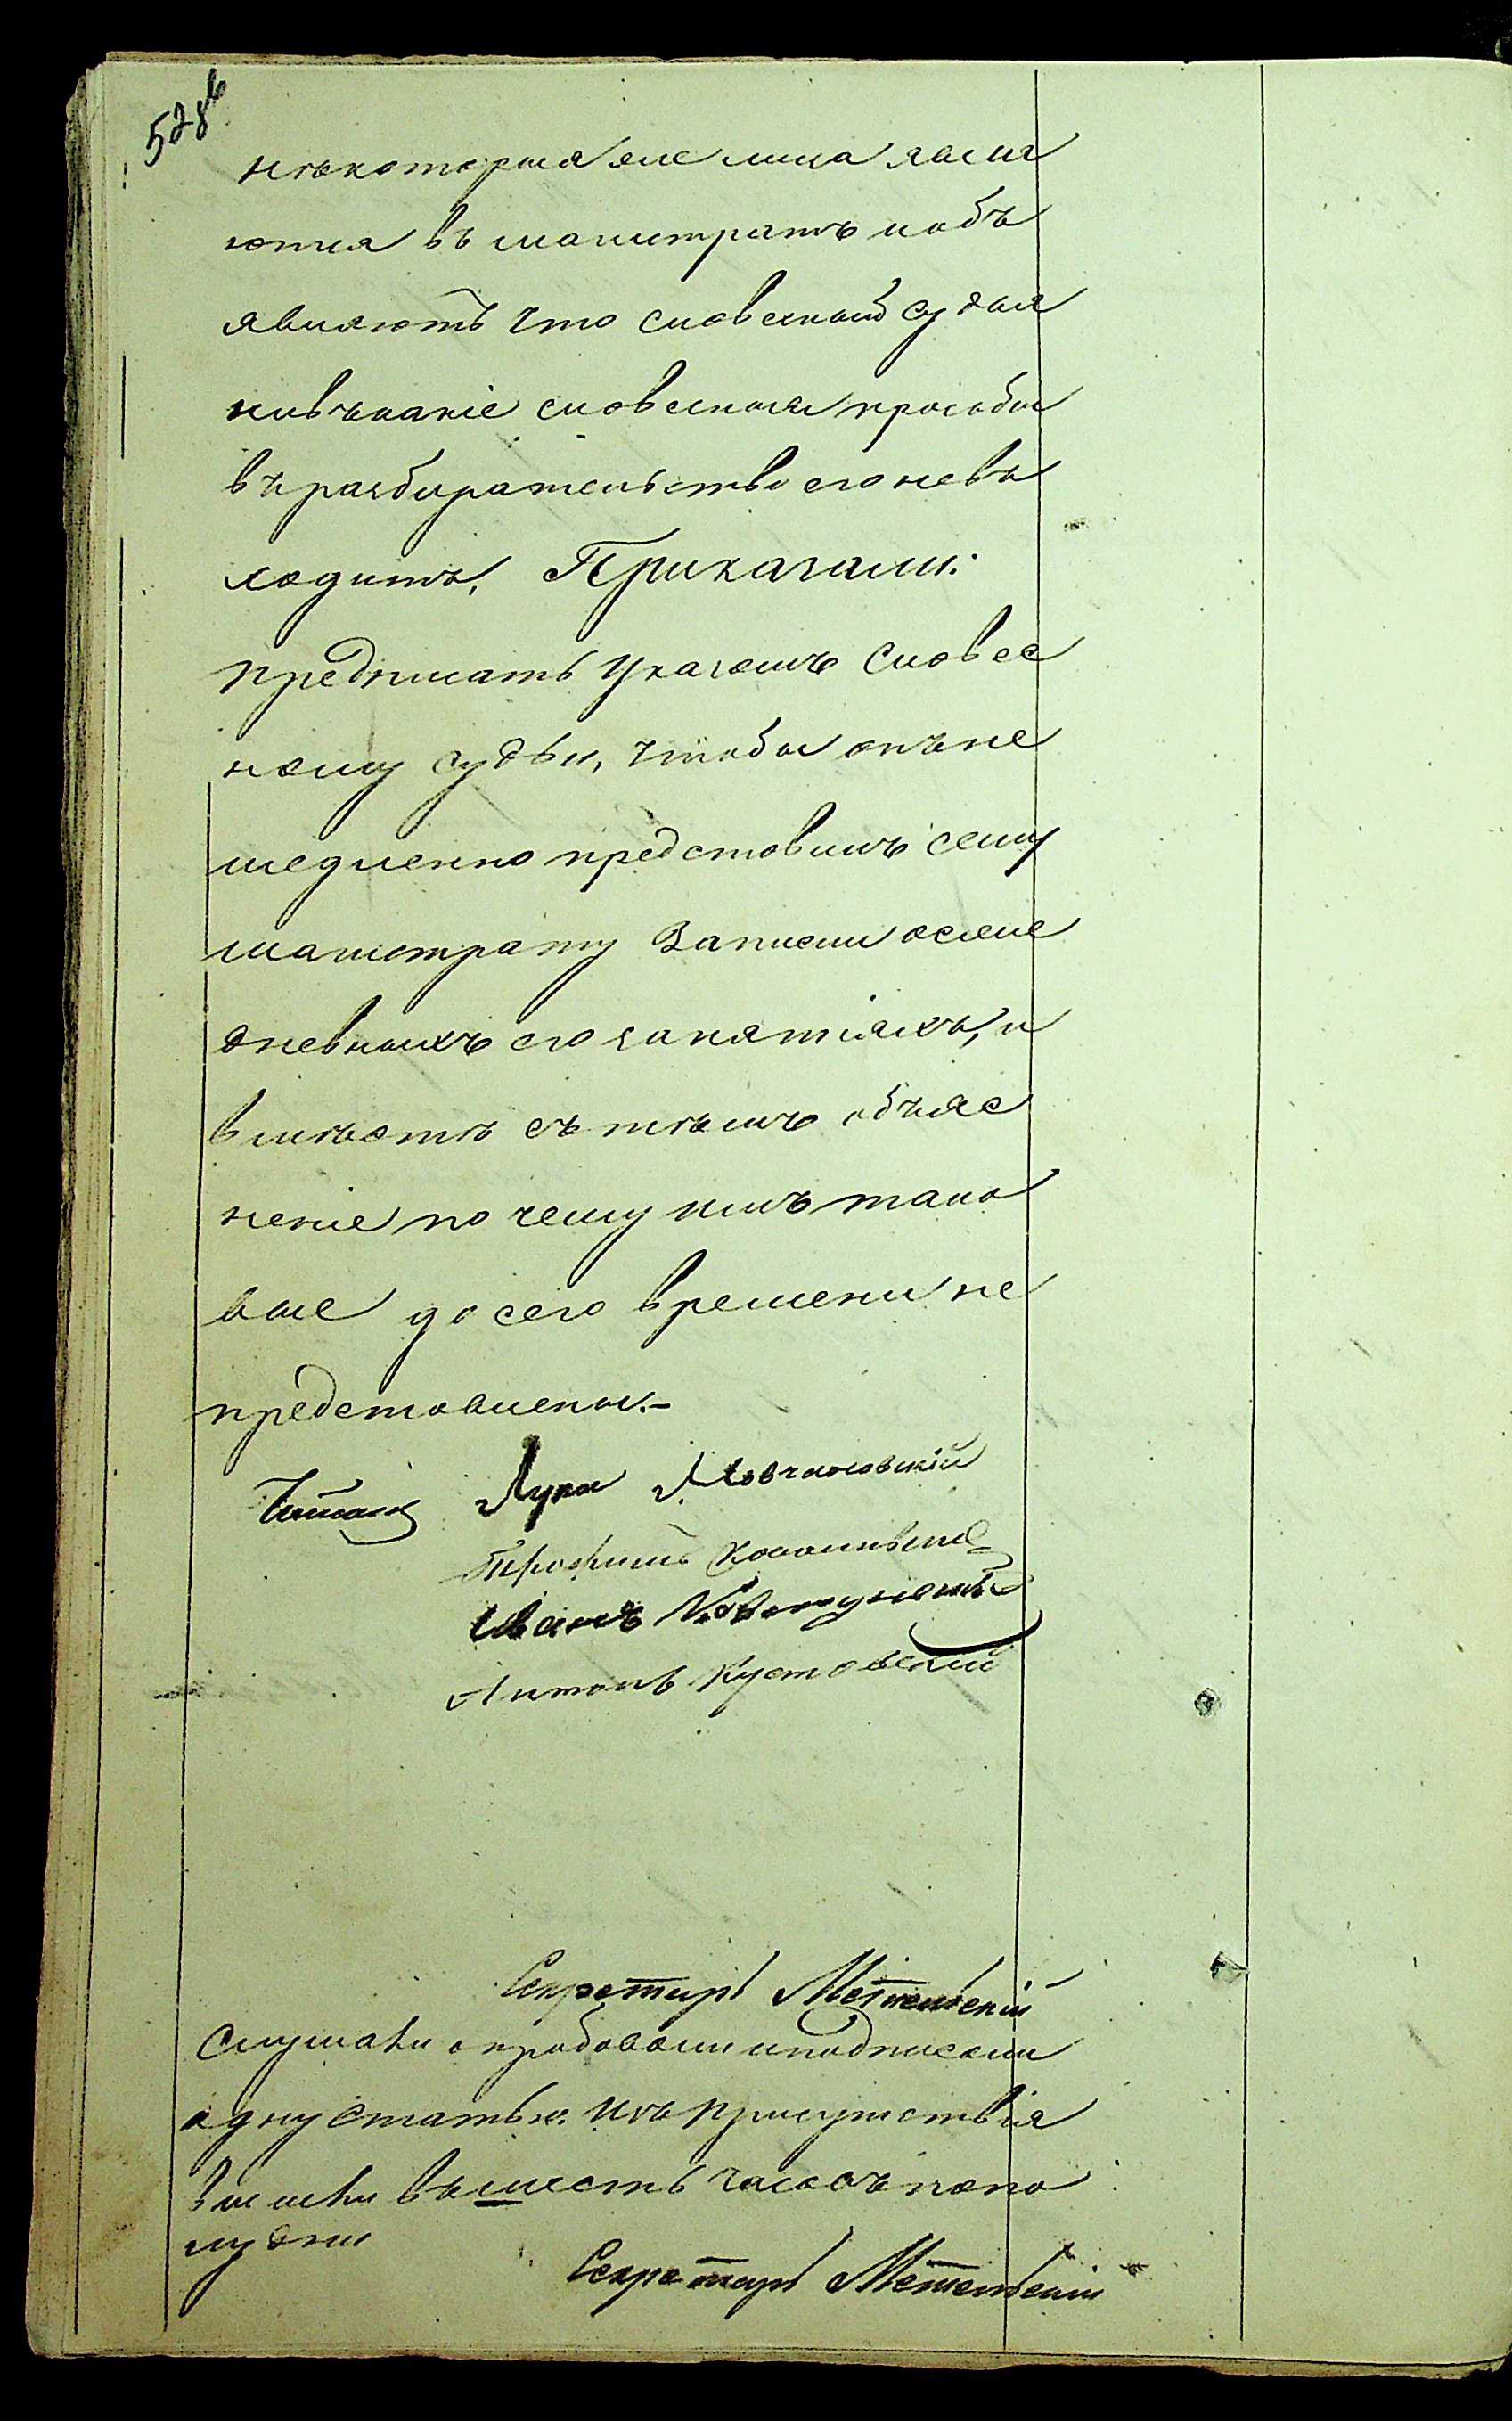 528б
нѣкоторыя же лица явля
ются въ магистратъ и объ
являютъ что словесный судья
ни въ какіе словесныя прособы
въ разбирательство его не въ
ходитъ, Приказали:
предписать указомъ словес
ному судьи, чтобы онъ не
медленно представилъ сему
магистрату записи о еже
дневныхъ его занятіяхъ, и
вмѣстѣ съ тѣмъ объяс
неніе по чему имъ тако
вые до сего времени не
представлены.-
Читалъ Лука
Трофимъ
Иванъ
Антонъ Кустовскій
Секретарь Метельскій
Слушали опробовали и подписали
одну статью. Изъ присутствія
вышли въ шесть часовъ попо
лудни
Секретарь Метельскій